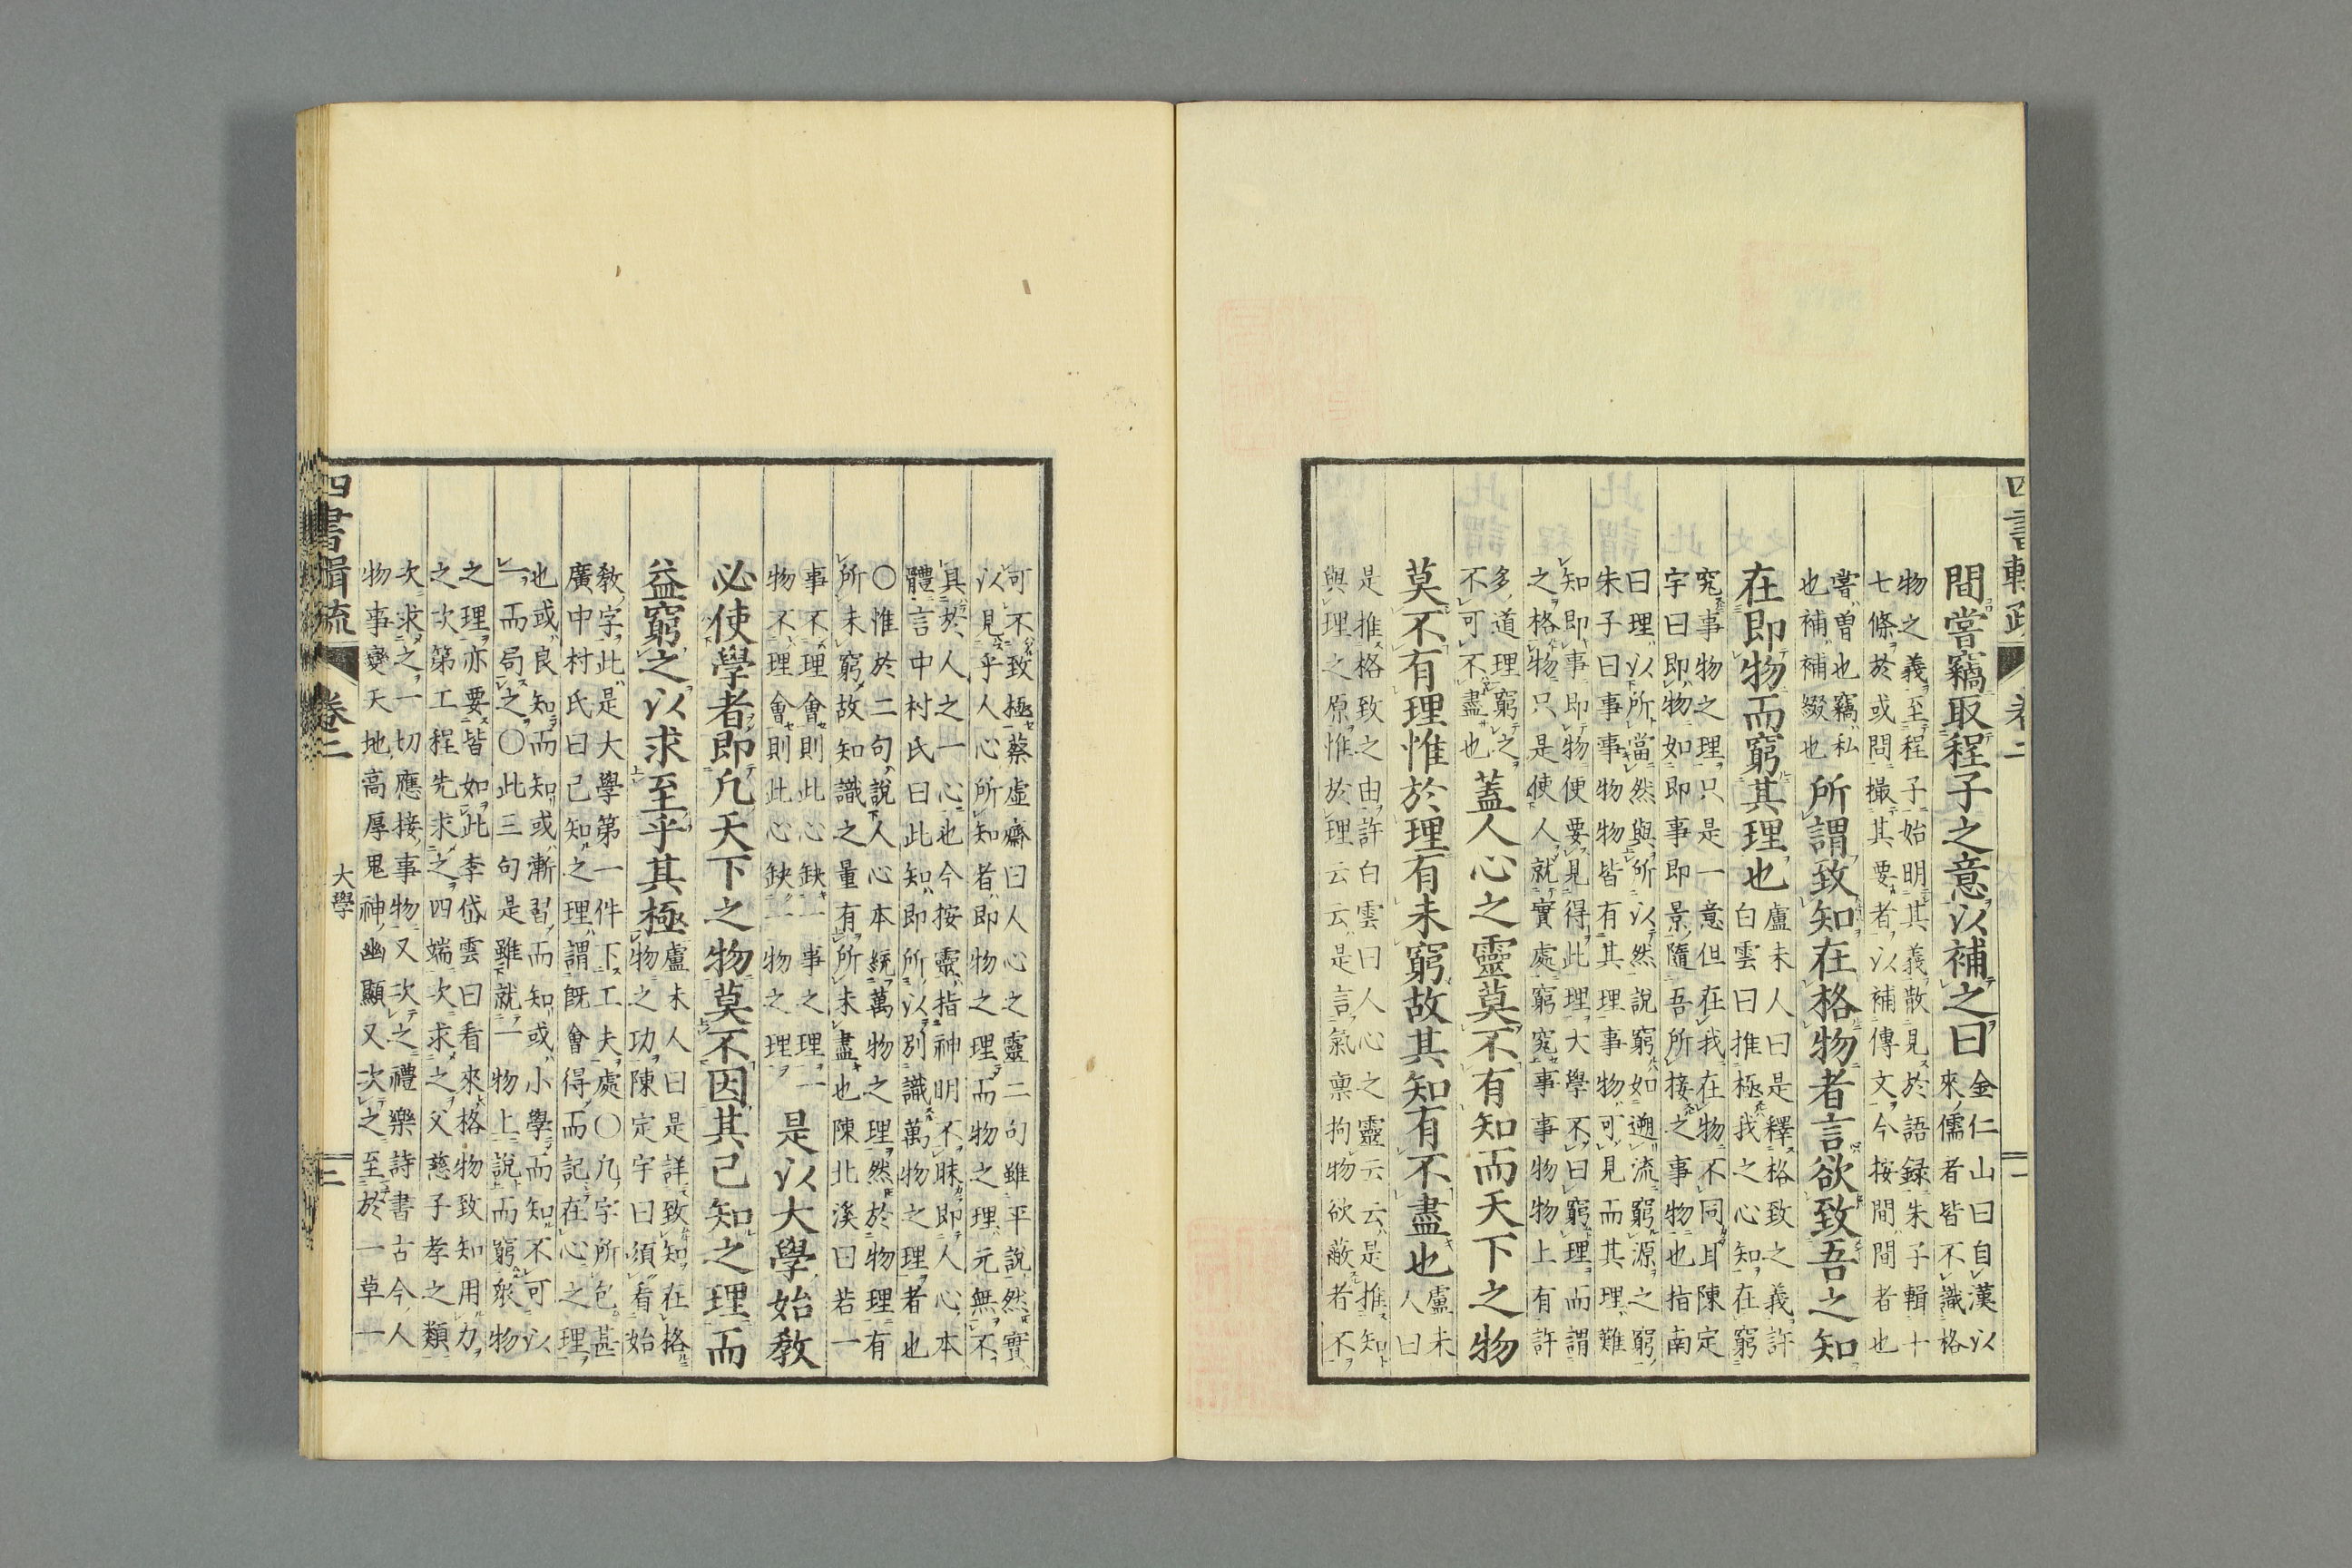 四書輯疏 卷二 二
間嘗竊取程子之意以補之曰
金仁山曰自漢以
來儒者皆不識格
物之義至程子始明其義散見於語録朱子輯十
七條於或問撮其要者以補傳文今按間間者也
嘗曽也竊私
也補補綴也
所謂致知在格物者言欲致吾之知
在即物而窮其理也
盧未人曰是釋格致之義許
白雲曰推極我之心知在窮
究事物之理只是一意但在我在物不同耳陳定
宇曰即物如即事即景隨吾所接之事物也指南
曰理以所當然與所以然說窮如遡流窮源之窮
朱子曰事事物物皆有其理事物可見而其理難
知即事即物便要見得此理大學不曰窮理而謂
之格物只是使人就實處窮究事事物物上有許
多道理窮之
不可不盡也
蓋人心之靈莫不有知而天下之物
莫不有理惟於理有未窮故其知有不盡也
盧未
人曰
是推格致之由許白雲曰人心之靈云云是推知
與理之原惟於理云云是言氣稟拘物欲蔽者不
可不致極蔡虛齋曰人心之靈二句雖平說然實
以見乎人心所知者即物之理而物之理元無不
具於人之一心也今按靈指神明不昧即人心本
體言中村氏曰此知即所以別識萬物之理者也
○惟於二句說人心本統萬物之理然於物理有
所未窮故知識之量有所未盡也陳北溪曰若一
事不理會則此心缺一事之理一
物不理會則此心缺一物之理
是以大學始教
必使學者即凡天下之物莫不因其已知之理而
益窮之以求至乎其極
盧未人曰是詳致知在格
物之功陳定宇曰須看始
教字此是大學第一件下工夫處○凡字所包甚
廣中村氏曰已知之理謂既會得而記在心之理
也或良知而知或漸習而知或小學而知不可以
一而局之○此三句是雖就一物上說而窮衆物
之理亦要皆如此李岱雲曰看來格物致知用力
之次第工程先求之四端次求之父慈子孝之類
次求之一切應接事物又次之禮樂詩書古今人
物事變天地高厚鬼神幽顯又次之至於一草一
四書輯疏 卷二 大學 三